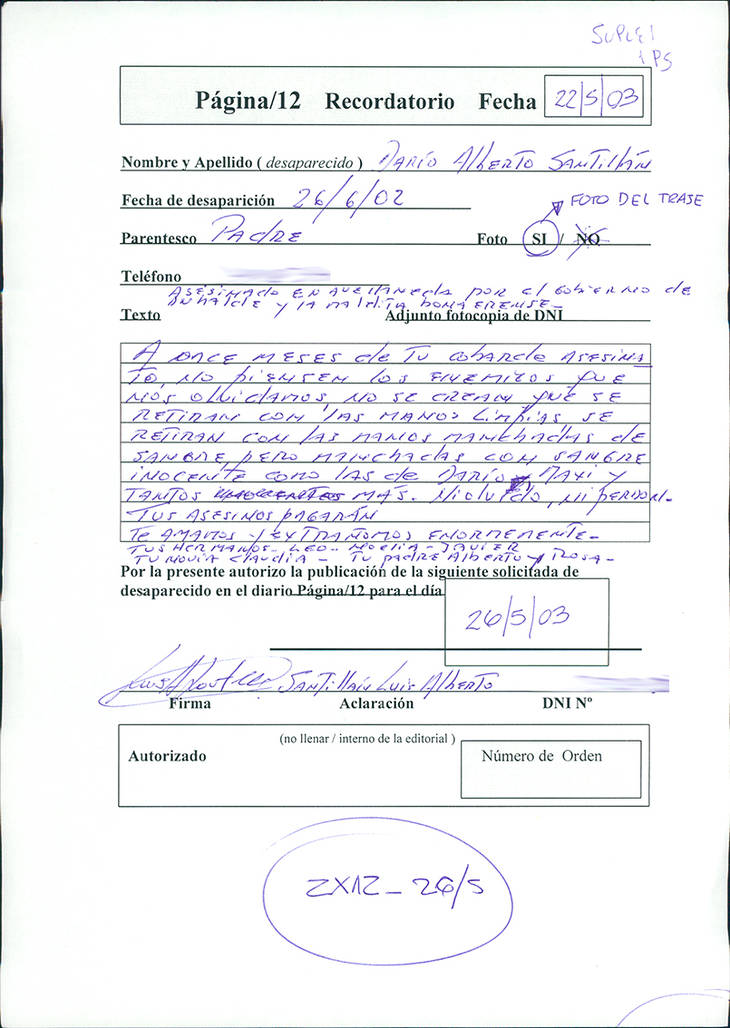 SUPLE 1
1 PS
Página/12 Recordatorio Fecha 22/5/03
Nombre y Apellido ( desaparecido ) Darío Alberto Santillán
Fecha de desaparición 26/6/02
FOTO DEL TRASE
Parentesco Padre Foto SI / NO
Teléfono
Asesinado en Avellaneda por el Gobierno de
Duhalde y la maldita Bonaerense-
Texto Adjunto fotocopia de DNI
A once meses de tu cobarde asesina
to, no piensen los enemigos que
nos olvidamos, no se crean que se
retiran con las manos limpias se
retiran con las manos manchadas de
sangre pero manchadas con sangre
inocente como las de Darío, Maxi y
tantos inocentes más. Ni olvido, ni perdon-
Tus asesinos pagarán
Te amamos y extrañamos enormemente-
Tus hermanos- Leo- Noelia- Javier
Tu novia Claudia- Tu padre Alberto y Rosa-
Por la presente autorizo la publicación de la siguiente solicitada de
desaparecido en el diario Página/12 para el día
26/5/03
Santillán Luis Alberto
Firma Aclaración DNI Nº
(no llenar / interno de la editorial )
Autorizado Número de Orden
2X12_26/5